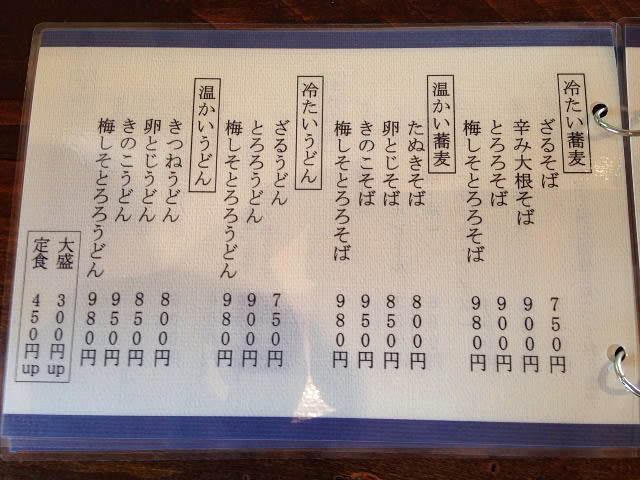 冷たい蕎麦
ざるそば 750円
辛み大根そば 900円
とろろそば 900円
梅しそとろろそば 980円
温かい蕎麦
たぬきそば 800円
卵とじそば 850円
きのこそば 950円
梅しそとろろそば 980円
冷たいうどん
ざるうどん 750円
とろろうどん 900円
梅しそとろろうどん 980円
温かいうどん
きつねうどん 800円
卵とじうどん 850円
きのこうどん 950円
梅しそとろろうどん 980円
大盛 300円up
定食 450円up